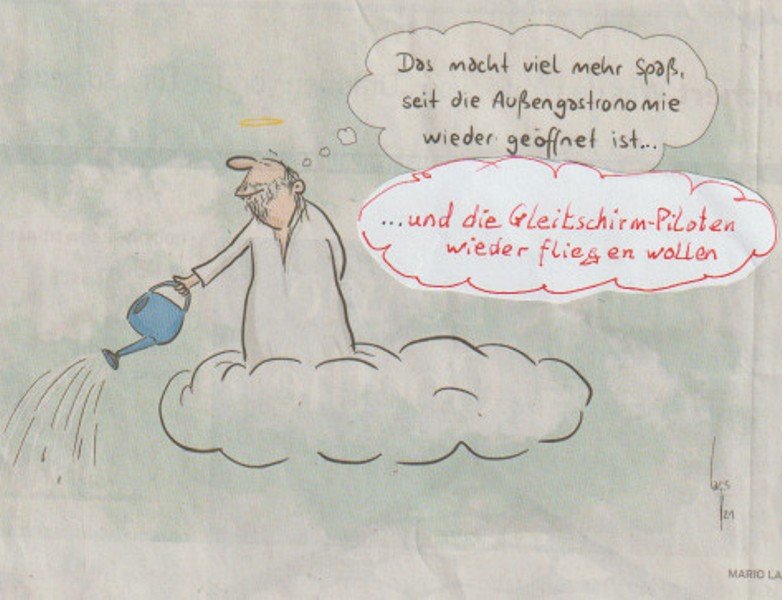 Das macht viel mehr Spaß,
seit die Außengastronomie
wieder geöffnet ist...
...und die Gleitschirm-Piloten
wieder fliegen wollen
21
MARIO LA